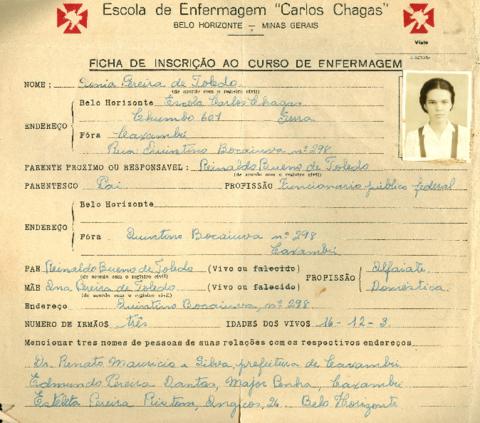 Escola de Enfermagem "Carlos Chagas"
BELO HORIZONTE — MINAS GERAIS
Visto
FICHA DE INSCRIÇÃO AO CURSO DE ENFERMAGEM
NOME: Pereira de Toledo
(de acordo com o registro civil)
Belo Horizonte Escola Carlos Chagas
Chumbo 601 Serra
ENDEREÇO
Fóra Caxambú
Rua Quintino Bocaiuva nº 298
PARENTE PROXIMO OU RESPONSAVEL: Reinaldo Bueno de Toledo
(de acordo com o registro civil)
PARENTESCO Pai PROFISSÃO Funcionario público federal
Belo Horizonte
ENDEREÇO
Fóra Quintino Bocaiuva nº 298
Caxambú
PAE Reinaldo Bueno de Toledo (Vivo ou falecido) Alfaiate
(de acordo com o registro civil)
PROFISSÃO
MÃE Ana Pereira de Toledo (Vivo ou falecido) Doméstica
(de acordo com o registro civil)
Endereço Quintino Bocaiuva, nº 298
NUMERO DE IRMÃOS três IDADES DOS VIVOS 16-12-3
Mencionar três nomes de pessoas de suas relações com os respectivos endereços.
Dr. Renato Mauricio e Silva, prefeitura de Caxambú
Edmundo Pereira Dantas, Major Penha, Caxambú
Pereira Angicos, 26 Belo Horizonte